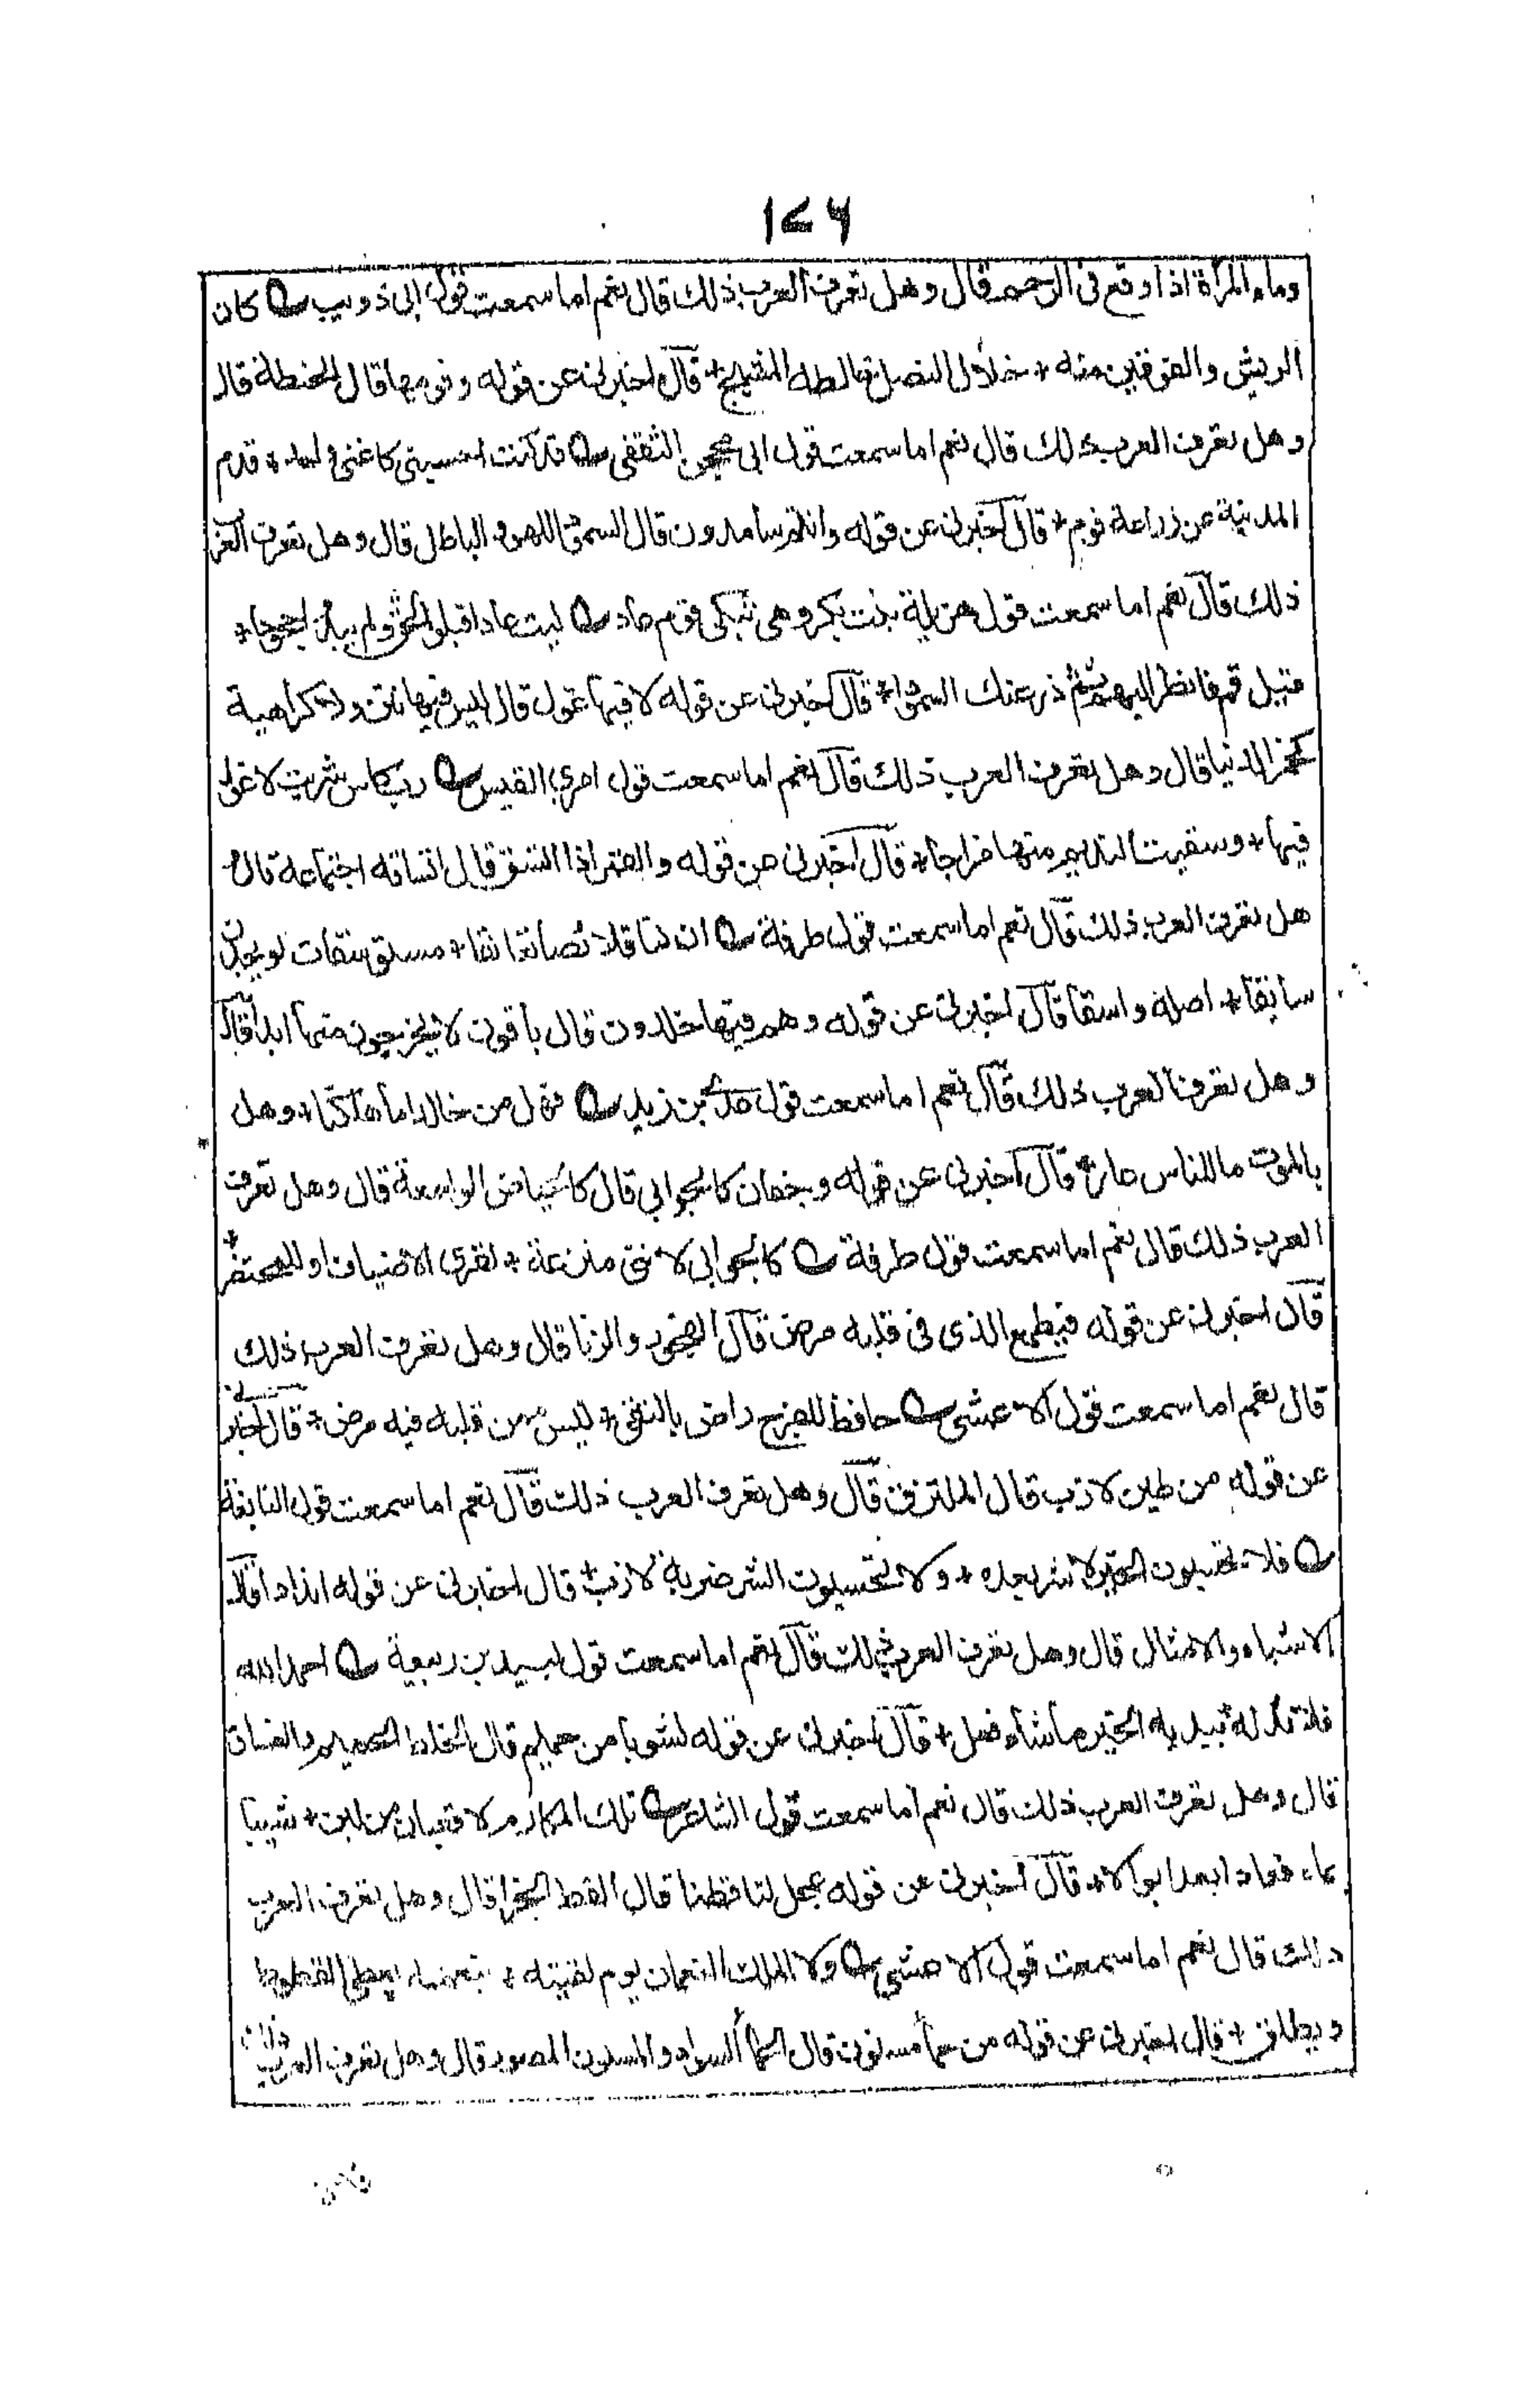 ١٤٦
وماء المرأة اذا وقع فى الرحم قال وهل تعرف العرب ذلك قال نعم اما سمعت قول ابى ذويب كان
الريش والفوقين منه + خلال النصل خالطه المشيج + قال اخبرنى عن قوله وفومها قال الحنطة قال
وهل تعرف العرب ذلك قال نعم اما سمعت قول ابى محجن الثقفى قد كنت احسبنى كاغنى واحد + قدم
المدينة عن زراعة فوم + قال اخبرنى عن قوله وانتم سامدون قال السمود اللهو والباطل قال وهل تعرف العرب
ذلك قال نعم اما سمعت قول هزيلة بنت بكر وهى تبكى قوم عاد ليت عادا قبلوا الحق ولم يبدوا جحودا +
قيل قم فانظر اليهم ثم ذر عنك السمودا + قال اخبرنى عن قوله لا فيها غول قال ليس فيها نتن ولا كراهية
كخمر الدنيا قال وهل تعرف العرب ذلك قال نعم اما سمعت قول امرئ القيس رب كاس شربت لا غول
فيها + وسقيت النديم منها مزاجا + قال اخبرنى عن قوله والقمر اذا اتسق قال اتساقه اجتماعه قال و
هل تعرف العرب ذلك قال نعم اما سمعت قول طرفة ان لنا قلائصا نقانقا + مستوسقات لو يجدن
سابقا + اصله واسقا قال اخبرنى عن قوله وهم فيها خلدون قال باقون لا يخرجون منها ابدا قال
وهل تعرف العرب ذلك قال نعم اما سمعت قول عدى بن زيد فهل من خالد اما هلكنا + وهل
بالموت ما للناس عار + قال اخبرنى عن قوله وجفان كالجوابى قال كالحياض الواسعة قال وهل تعرف
العرب ذلك قال نعم اما سمعت قول طرفة كالجوابى لا تنى مترعة + لقرى الاضياف او للمحتضر +
قال اخبرنى عن قوله فيطمع الذى فى قلبه مرض قال الفجور والزنا قال وهل تعرف العرب ذلك
قال نعم اما سمعت قول الاعشى حافظ للفرج راض بالتقى + ليس ممن قلبه فيه مرض + قال اخبرنى
عن قوله من طين لازب قال الملتزق قال وهل تعرف العرب ذلك قال نعم اما سمعت قول النابغة
فلا تحسبون الخير لا شر بعده + ولا تحسبون الشر ضربة لازب + قال اخبرنى عن قوله اندادا قال
الاشباه والامثال قال وهل تعرف العرب ذلك قال نعم اما سمعت قول لبيد بن ربيعة احمد الله
فلا ند له بيديه الخير ما شاء فعل + قال اخبرنى عن قوله لشوبا من حميم قال الخلط الحميم والغساق
قال وهل تعرف العرب ذلك قال نعم اما سمعت قول الشاعر تلك المكارم لا قعبان من لبن + شيبا
بماء فعادا بعد ابوالا + قال اخبرنى عن قوله عجل لنا قطنا قال القط الجزا قال وهل تعرف العرب
ذلك قال نعم اما سمعت قول الاعشى ولا الملك النعمان يوم لقيته + بنعمته يعطى القطوط
ويطلق + قال اخبرنى عن قوله من حمأ مسنون قال الحمأ السواد والمسنون المصور قال وهل تعرف العرب ذلك